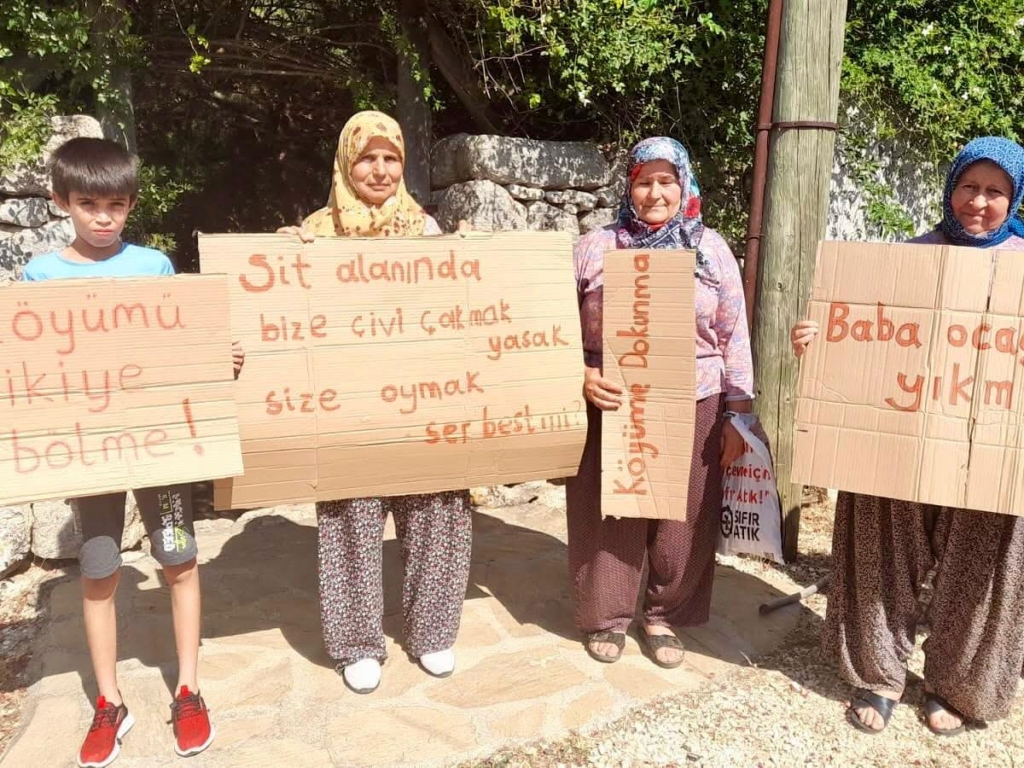 öyümü
ikiye
bölme!
Sit alanında
bize çivi çakmak
yasak
size oymak
serbest mi?
Köyüme Dokunma
Baba oca
yıkm
SIFIR
ATIK